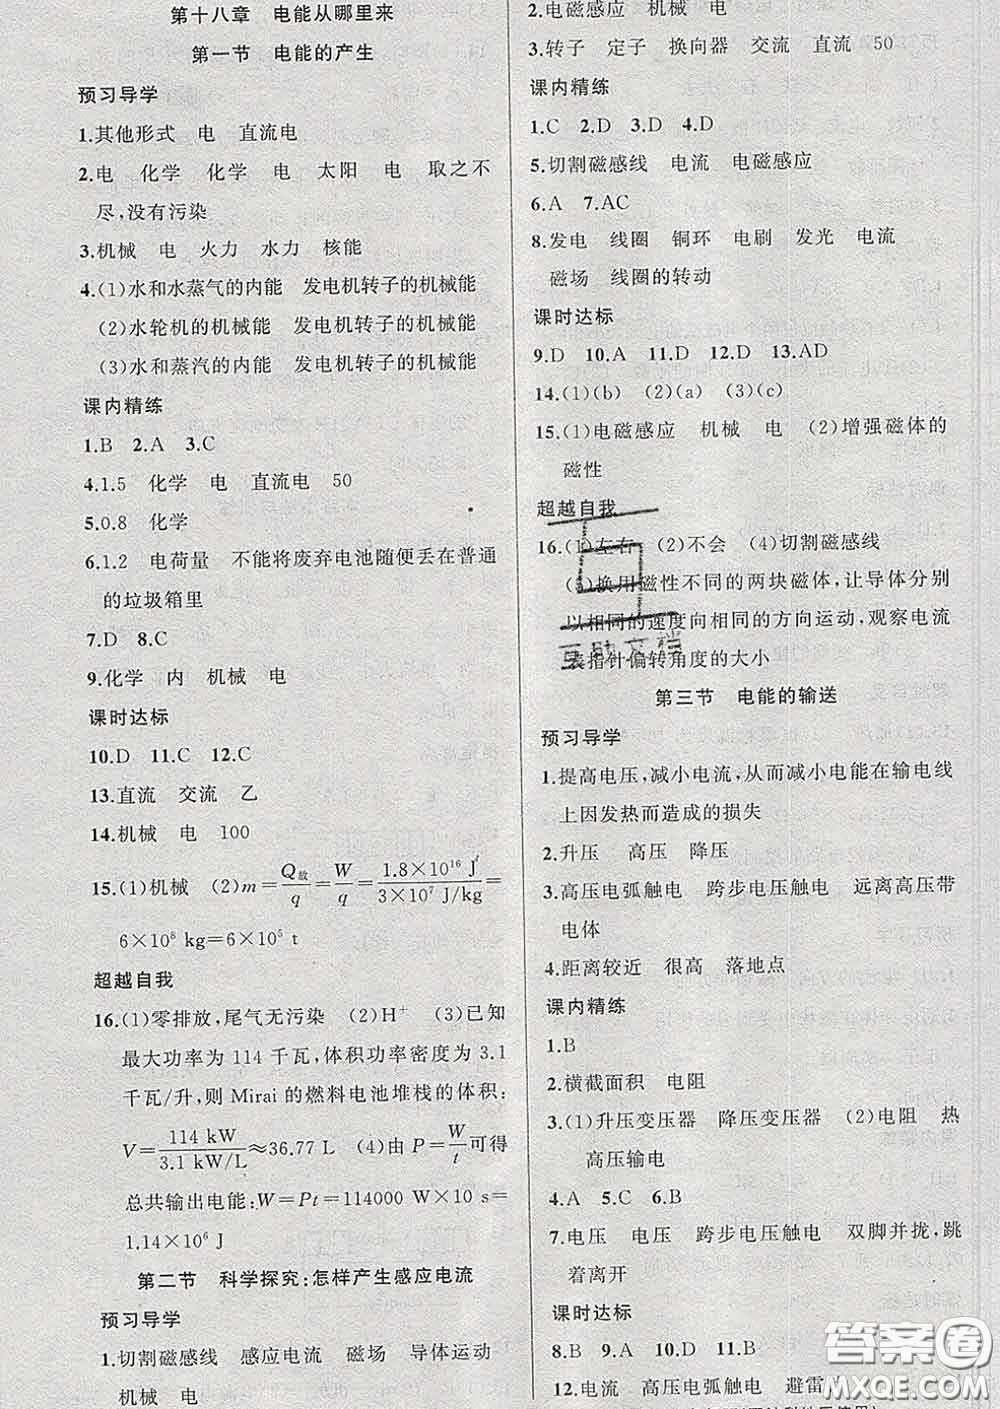 第十八章 电能从哪里来
第一节 电能的产生
预习导学
1.其他形式 电 直流电
2.电 化学 化学 电 太阳 电 取之不
尽,没有污染
3.机械 电 火力 水力 核能
4.(1)水和水蒸气的内能 发电机转子的机械能
(2)水轮机的机械能 发电机转子的机械能
(3)水和蒸汽的内能 发电机转子的机械能
课内精练
1.B 2.A 3.C
4.1.5 化学 电 直流电 50
5.0.8 化学
6.1.2 电荷量 不能将废弃电池随便丢在普通
的垃圾箱里
7.D 8.C
9.化学 内 机械 电
课时达标
10.D 11.C 12.C
13.直流 交流 乙
14.机械 电 100
15.(1)机械 (2)m=Q放/q=W/q=1.8×10¹⁶ J/3×10⁷ J/kg=
6×10⁸ kg=6×10⁵ t
超越自我
16.(1)零排放,尾气无污染 (2)H⁺ (3)已知
最大功率为114千瓦,体积功率密度为3.1
千瓦/升,则Mirai的燃料电池堆栈的体积:
V=114 kW/3.1 kW/L≈36.77 L (4)由P=W/t可得
总共输出电能:W=Pt=114000 W×10 s=
1.14×10⁶ J
第二节 科学探究:怎样产生感应电流
预习导学
1.切割磁感线 感应电流 磁场 导体运动
机械 电
2.电磁感应 机械 电
3.转子 定子 换向器 交流 直流 50
课内精练
1.C 2.D 3.D 4.D
5.切割磁感线 电流 电磁感应
6.A 7.AC
8.发电 线圈 铜环 电刷 发光 电流
磁场 线圈的转动
课时达标
9.D 10.A 11.D 12.D 13.AD
14.(1)(b) (2)(a) (3)(c)
15.(1)电磁感应 机械 电 (2)增强磁体的
磁性
超越自我
16.(1)左右 (2)不会 (4)切割磁感线
(5)换用磁性不同的两块磁体,让导体分别
以相同的速度向相同的方向运动,观察电流
表指针偏转角度的大小
第三节 电能的输送
预习导学
1.提高电压,减小电流,从而减小电能在输电线
上因发热而造成的损失
2.升压 高压 降压
3.高压电弧触电 跨步电压触电 远离高压带
电体
4.距离较近 很高 落地点
课内精练
1.B
2.横截面积 电阻
3.(1)升压变压器 降压变压器 (2)电阻 热
高压输电
4.A 5.C 6.B
7.电压 电压 跨步电压触电 双脚并拢,跳
着离开
课时达标
8.B 9.A 10.D 11.B
12.电流 高压电弧触电 避雷
答案圈
MXQE.COM